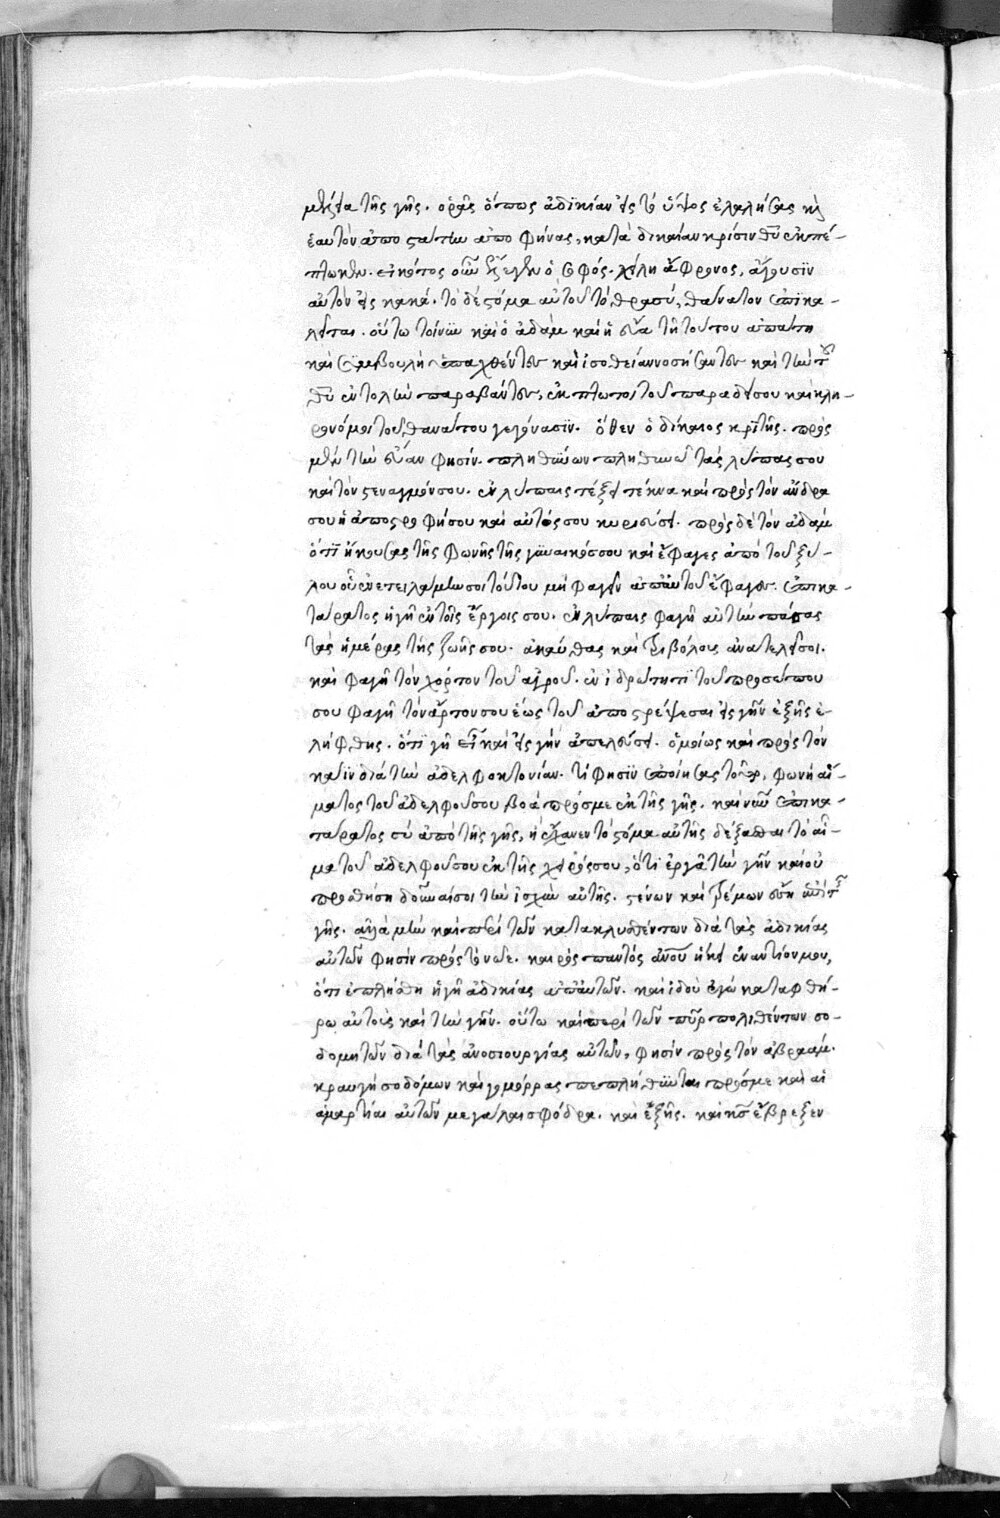 μέσα τῆς γῆς. ὁρᾶς ὅπως ἀδικίαν εἰς τὸ ὕψος ἐλαλήσας καὶ
ἑαυτὸν ἀποστάτην ἀποφήνας, κατὰ δικαίαν κρίσιν θῦ ἐκπέ-
πτωκεν. εἰκότος οὖν ἔλεγεν ὁ σοφός. χείλη ἄφρονος, ἄγουσϊν
αὐτὸν εἰς κακά. τὸ δὲ στόμα αὐτοῦ τὸ θρασύ, θάνατον ἐπϊκα-
λεῖται. οὕτω τοίνυν καὶ ὁ ἀδὰμ καὶ ἡ εὔα τῆ τούτου ἀπάτη
καὶ συμβουλῆ ἐπαχθέντες καὶ ἰσοθεΐαν νοσήσαντες καὶ τὴν τοῦ
θῦ ἐντολὴν παραβάντες, ἔκπτωτοι τοῦ παραδείσου καὶ κλη-
ρονόμοι τοῦ θανάτου γεγόνασϊν. ὅθεν ὁ δίκαιος κριτὴς. πρὸς
μὲν τὴν εὔαν φησίν. πληθύνων πληθυνῶ τὰς λύπας σου
καὶ τὸν στεναγμόν σου. ἐν λύπαις τέξει τέκνα καὶ πρὸς τὸν ἄνδρα
σου ἡ ἀποστροφή σου καὶ αὐτός σου κυριεύσει. πρὸς δὲ τὸν ἀδὰμ
ὅτϊ ἤκουσας τῆς φωνῆς τῆς γυναικός σου καὶ ἔφαγες ἀπὸ τοῦ ξύ-
λου οὗ ἐνετειλάμην σοι τούτου μὴ φαγεῖν ἀπ' αὐτοῦ ἔφαγες. ἐπικα-
τάρατος ἡ γῆ ἐν τοῖς ἔργοις σου. ἐν λύπαις φαγῆ αὐτὴν πάσας
τὰς ἡμέρας τῆς ζωῆς σου. ἀκάνθας καὶ τριβόλους ἀνατελεῖ σοι.
καὶ φαγῆ τὸν χόρτον τοῦ ἀγροῦ. ἐν ἱδρώτητϊ τοῦ προσώπου
σου φαγῆ τὸν ἄρτον σου ἕως τοῦ ἀποστρέψεσαι εἰς γῆν ἐξ ἧς ἐ-
λήφθης. ὅτϊ γῆ εἶ καὶ εἰς γῆν ἀπελεύσει. ὁμοίως καὶ πρὸς τὸν
κάϊν διὰ τὴν ἀδελφοκτονίαν. τί φησϊν ἐποίησας τοῦτο, φωνὴ αἵ-
ματος τοῦ ἀδελφοῦ σου βοᾶ πρός με ἐκ τῆς γῆς. καὶ νῦν ἐπικα-
τάρατος σὺ ἀπὸ τῆς γῆς, ἣ ἔχανεν τὸ στόμα αὐτῆς δέξασθαι τὸ αἷ-
μα τοῦ ἀδελφοῦ σου ἐκ τῆς χειρός σου, ὅτι ἐργᾶ τὴν γῆν καὶ οὐ
προσθήση δοῦναί σοι τὴν ἰσχὺν αὐτῆς. στένων καὶ τρέμων ἔση ἐπὶ τῆς
γῆς. ἀλλὰ μὴν καὶ περὶ τῶν κατακλυσθέντων διὰ τὰς ἀδικίας
αὐτῶν φησὶν πρὸς τὸ νῶε. καιρὸς παντὸς ἀνου ἥκει ἐναντίον μου,
ὅτι ἐπλήσθη ἡ γῆ ἀδικίας ἀπ' αὐτῶν. καὶ ἰδοὺ ἐγὼ καταφθεί-
ρω αὐτοὺς καὶ τὴν γῆν. οὕτω καὶ περὶ τῶν πυρποληθέντων σο-
δομητῶν διὰ τὰς ἀνοσιουργίας αὐτῶν, φησὶν πρὸς τὸν ἀβραάμ.
κραυγὴ σοδόμων καὶ γομόρρας πεπλήθυνται πρός με καὶ αἱ
ἁμαρτίαι αὐτῶν μεγάλαι σφόδρα. καὶ ἑξῆς. καὶ κς ἔβρεξεν